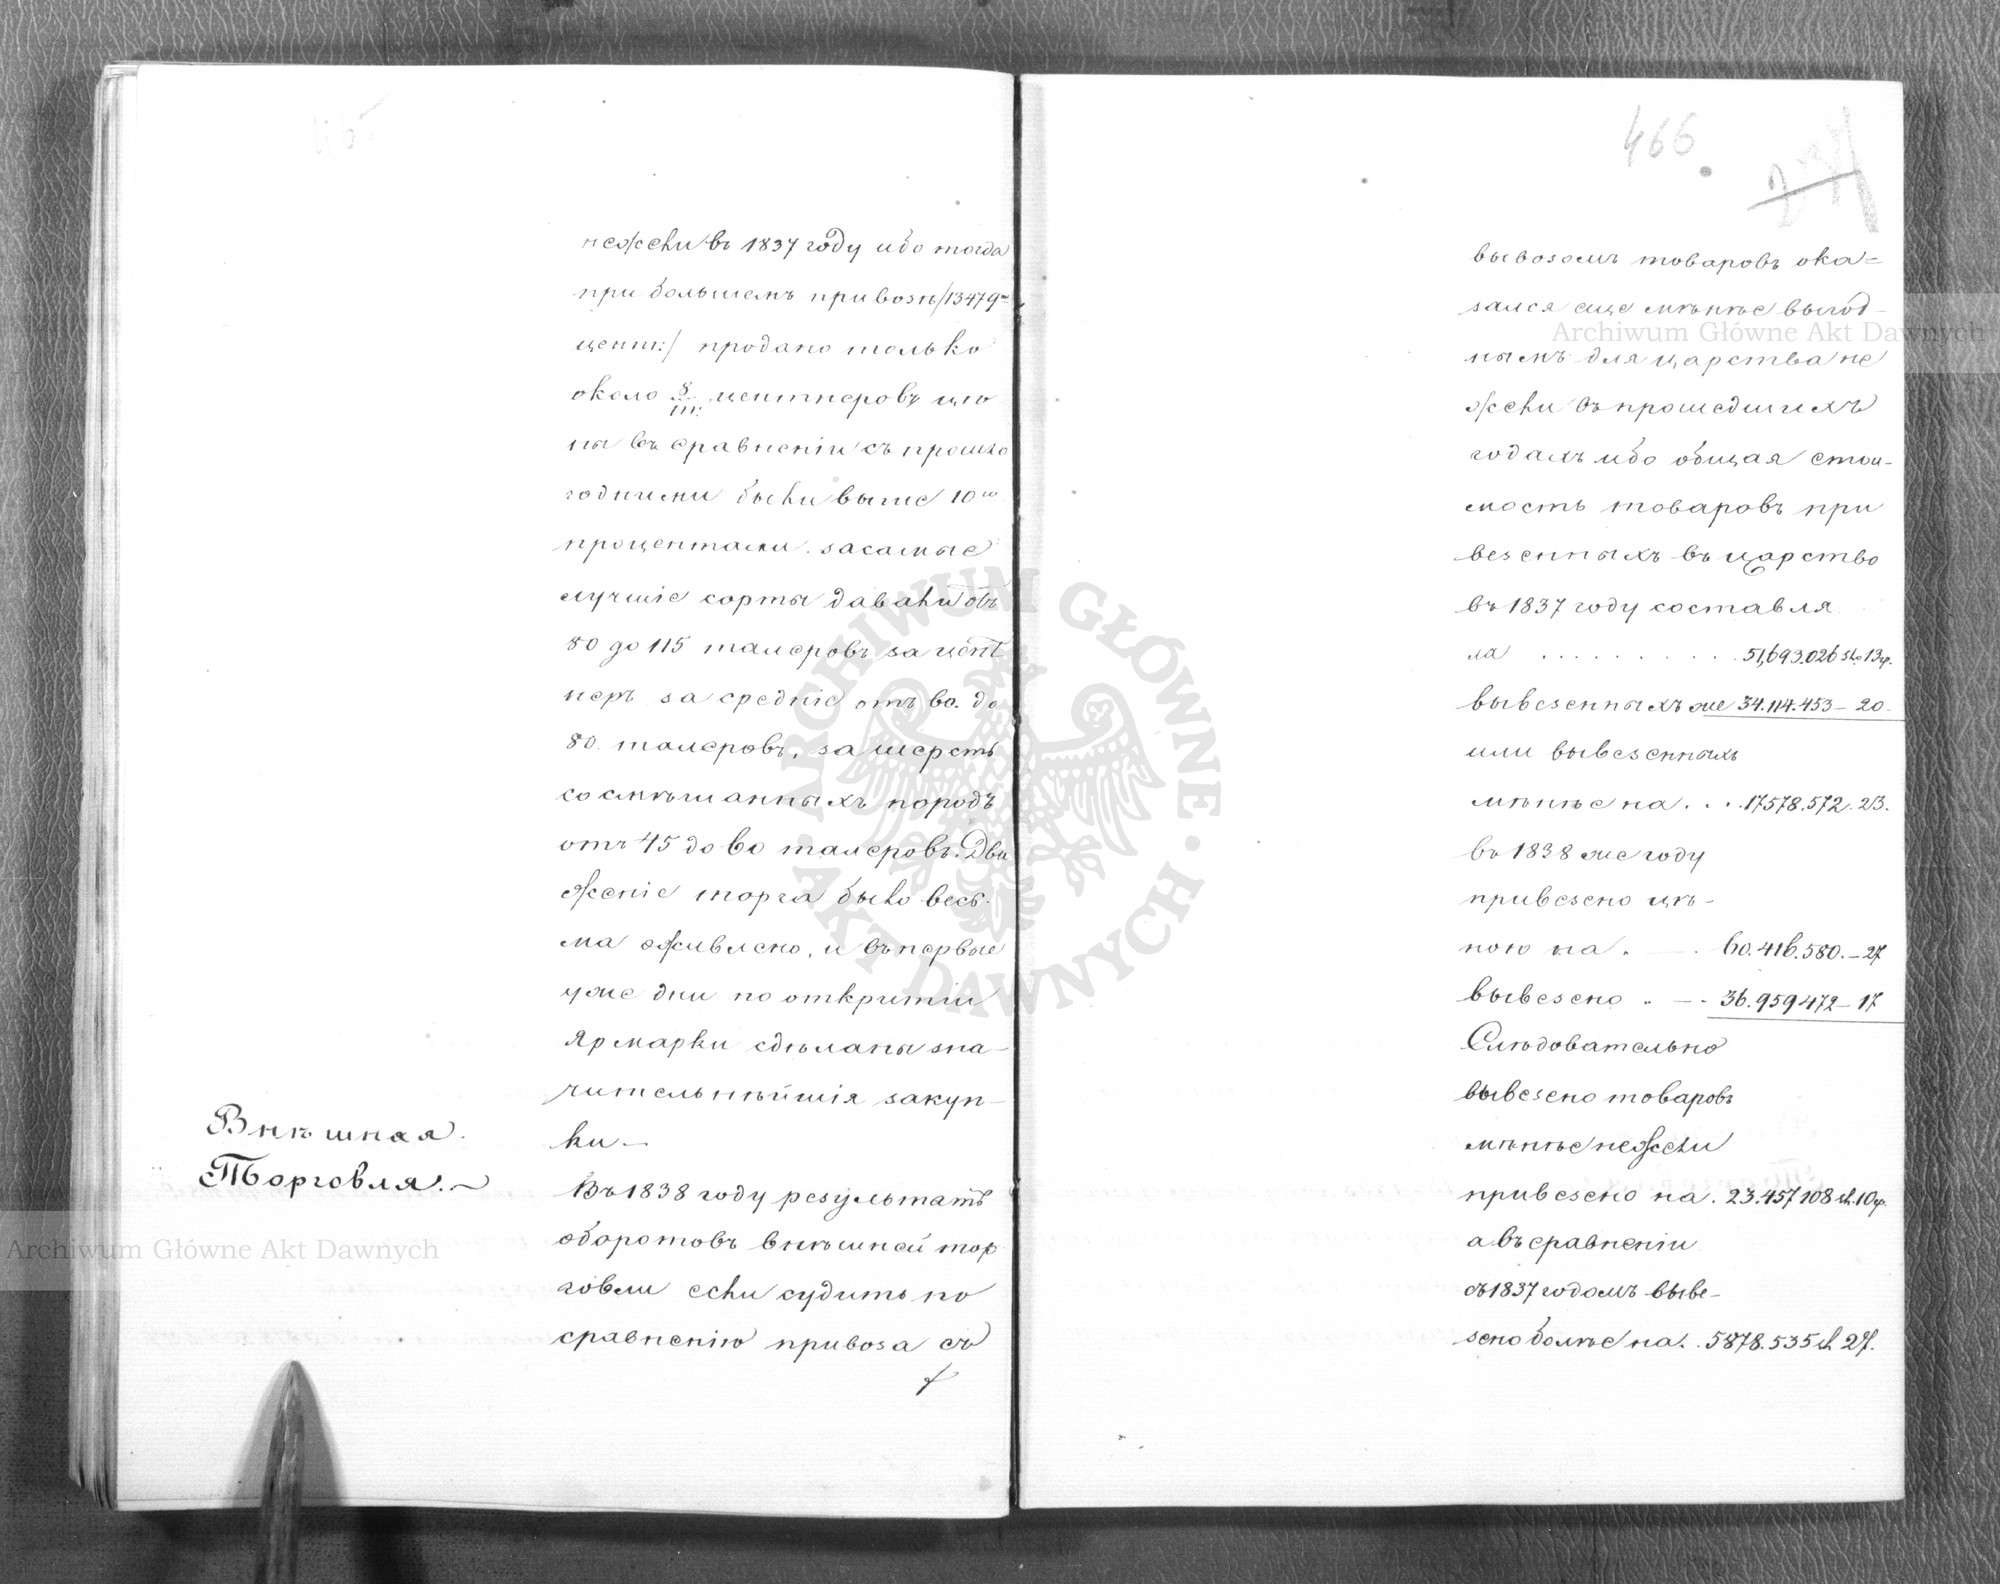 нежели въ 1837 году ибо тогда
при большемъ привозѣ /13479
цент:/ продано только
около 8/m: центнеровъ цѣ
ны въ сравненіи съ прошло
годними были выше 10ю
процентами. за самые
лучшіе сорты давали отъ
80 до 115 талеровъ за цент
неръ за средніе отъ 60. до
80. талеровъ, за шерсть
со смѣшанныхъ породъ
отъ 45 до 60 талеровъ. Дви
женіе торга было весь-
ма оживлено, и въ первые
уже дни по открытіи
Ярмарки сдѣланы зна-
чительнѣйшія закуп-
ки —
Внѣшная
Торговля. —
Въ 1838 году результатъ
оборотовъ внѣшней тор
говли если судить по
сравненію привоза съ
466
вывозомъ товаровъ ока=
зался еще менѣе выгод-
нымъ для царства не
жели въ прошедшихъ
годахъ ибо общая стои-
мость товаровъ при
везенныхъ въ царство
въ 1837 году составля
ла . . . . . . . . . 51,693.026 зл. 13 гр.
вывезенныхъ же 34.114.453 — 20.
или вывезенныхъ
мѣнѣе на . . . 17.578.572. 23.
въ 1838 же году
привезено цѣ-
ною на . — . 60.416.580. — 27
вывезено .. — . 36.959.472 — 17
Слѣдовательно
вывезено товаровъ
мѣнѣе нежели
привезено на . 23.457.108 зл. 10 гр.
а въ сравненіи
съ 1837 годомъ выве-
зено болѣе на . . 5878.535 зл. 27.
Archiwum Główne Akt Dawnych
Archiwum Główne Akt Dawnych
ARCHIWUM GŁÓWNE AKT DAWNYCH